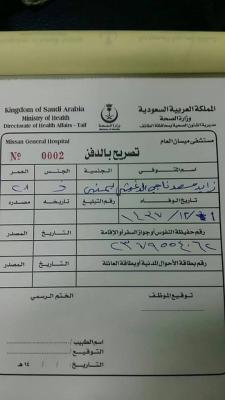 Kingdom of Saudi Arabia
Ministry of Health
Directorate of Health Affairs - Taif
المملكة العربية السعودية
وزارة الصحة
مديرية الشئون الصحية بمحافظة الطائف
وزارة الصحة
Missan General Hospital
مستشفى ميسان العام
№ 0002
تصريح بالدفن
اسم المتوفي الجنسية الجنس العمر
زايد سعد ناجي يمني ذ ٢٨
تاريخ الوفاة رقم التبليغ تاريخه مصدره
١٤٣٧/١٢/
رقم حفيظة النفوس أو جواز السفر أو الإقامة التاريخ المصدر
٢٣٧٩٥٥٤٠٦٢
رقم بطاقة الأحوال المدنية أو بطاقة العائلة التاريخ المصدر
توقيع الموظف الختم الرسمي
اسم الطبيب :
التوقيع :
التاريخ : / / ١٤ هـ